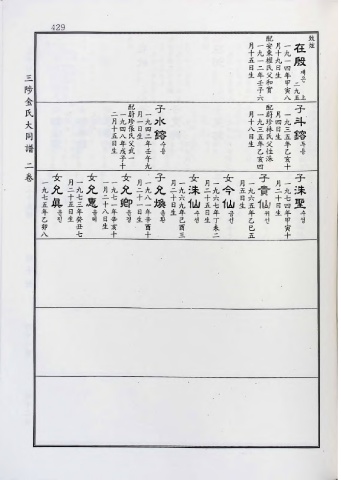 429
三陟金氏大同譜 二卷
在殷 재은
一九一四年甲寅八
月十九日生
配安東權氏父和實
一九一二年壬子六
月十五日生
子斗鎔 두용
一九三五年乙亥十
月四日生
配蔚珍林氏父
一九三五年乙亥四
月十八日生
子洙聖 수성
一九七四年甲寅十
月二十日生
子貴仙 귀선
一九六五年乙巳五
月五日生
女今仙 금선
一九六七年丁未二
月二十五日生
女洙仙 수선
一九六九年己酉三
月二十日生
子水鎔 수용
一九四二年壬午九
月一日生
配蔚珍張氏父式一
一九四八年戊子十
二月十五日生
子允煥 윤환
一九八一年辛酉十
月二十一日生
女允卿 윤경
一九七一年辛亥十
一月二十八日生
女允惠 윤혜
一九七三年癸丑七
月二十三日生
女允眞 윤진
一九七五年乙卯八